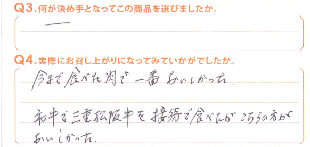 Q3.何が決め手となってこの商品を選びましたか。
Q4.実際にお召し上がりになってみていかがでしたか。
今まで食べた肉で一番おいしかった
和牛で三重松阪牛を接待で食べたが こちらの方が
おいしかった。